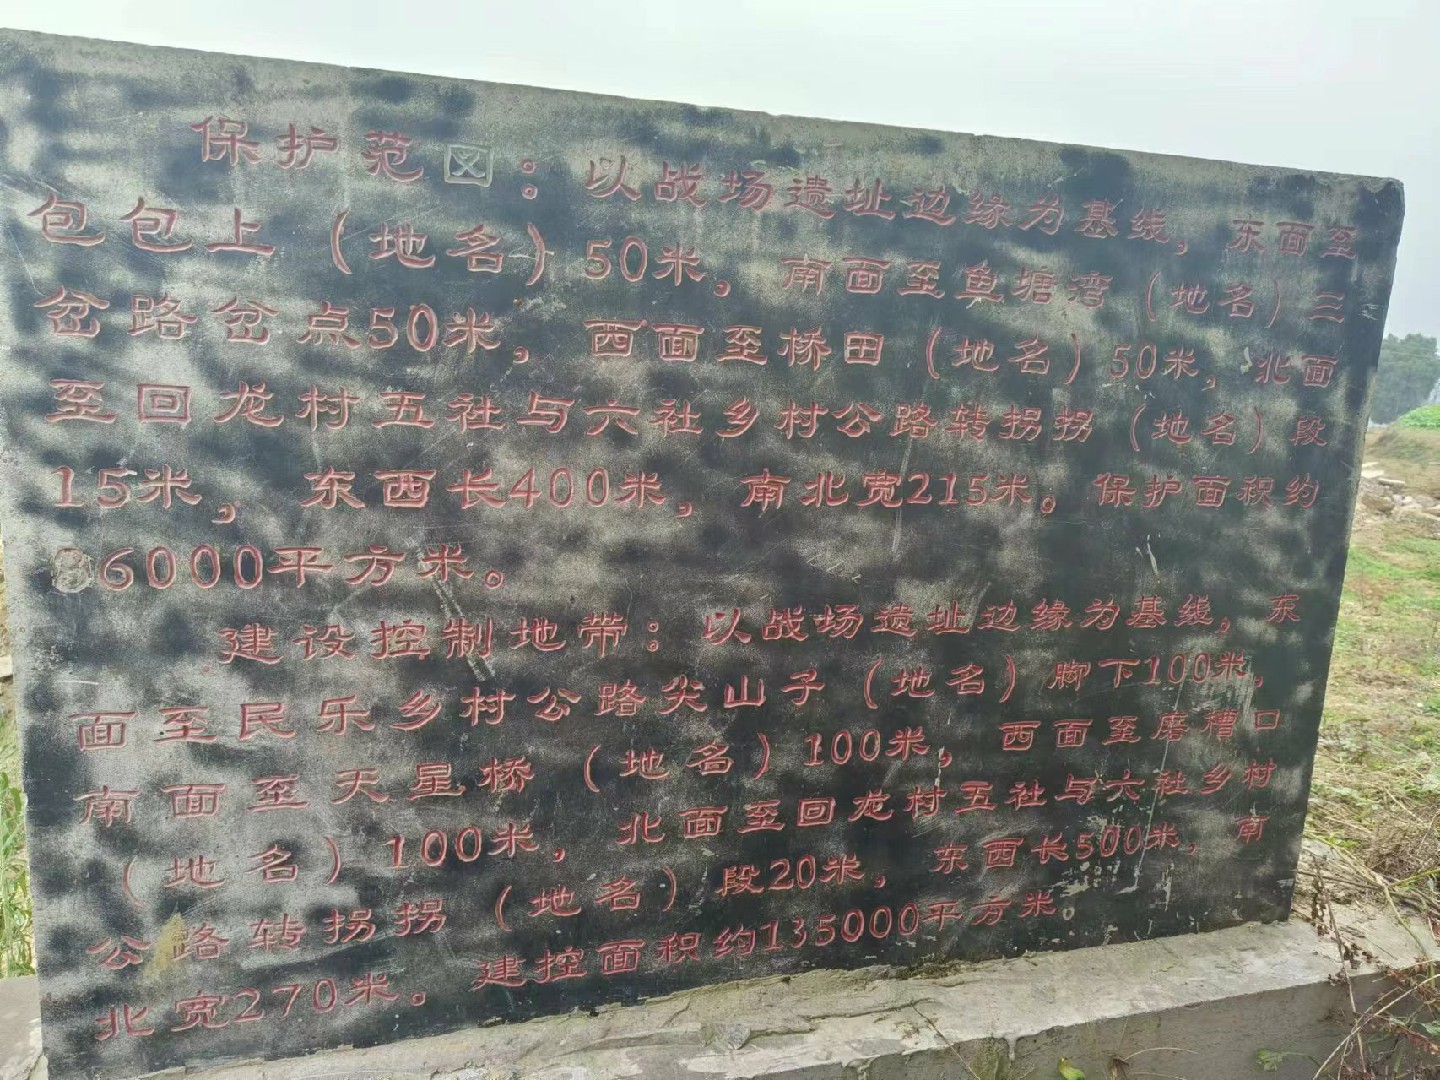 保护范围：以战场遗址边缘为基线，东面至
包包上（地名）50米，南面至鱼塘湾（地名）三
岔路岔点50米，西面至桥田（地名）50米，北面
至回龙村五社与六社乡村公路转拐拐（地名）段
15米，东西长400米，南北宽215米。保护面积约
86000平方米。
建设控制地带：以战场遗址边缘为基线，东
面至民乐乡村公路尖山子（地名）脚下100米，
南面至天星桥（地名）100米，西面至磨槽口
（地名）100米，北面至回龙村五社与六社乡村
公路转拐拐（地名）段20米，东西长500米，南
北宽270米。建控面积约135000平方米。